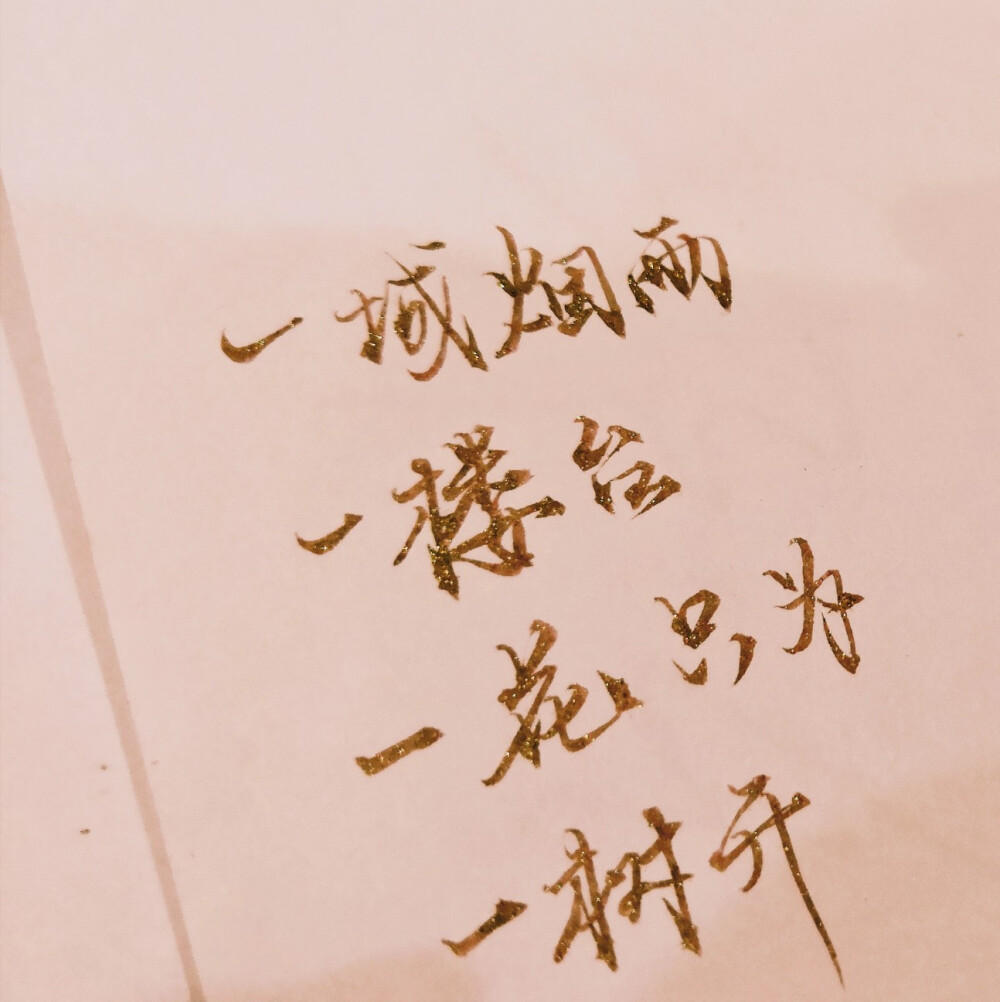 一城烟雨
一楼台
一花只为
一树开